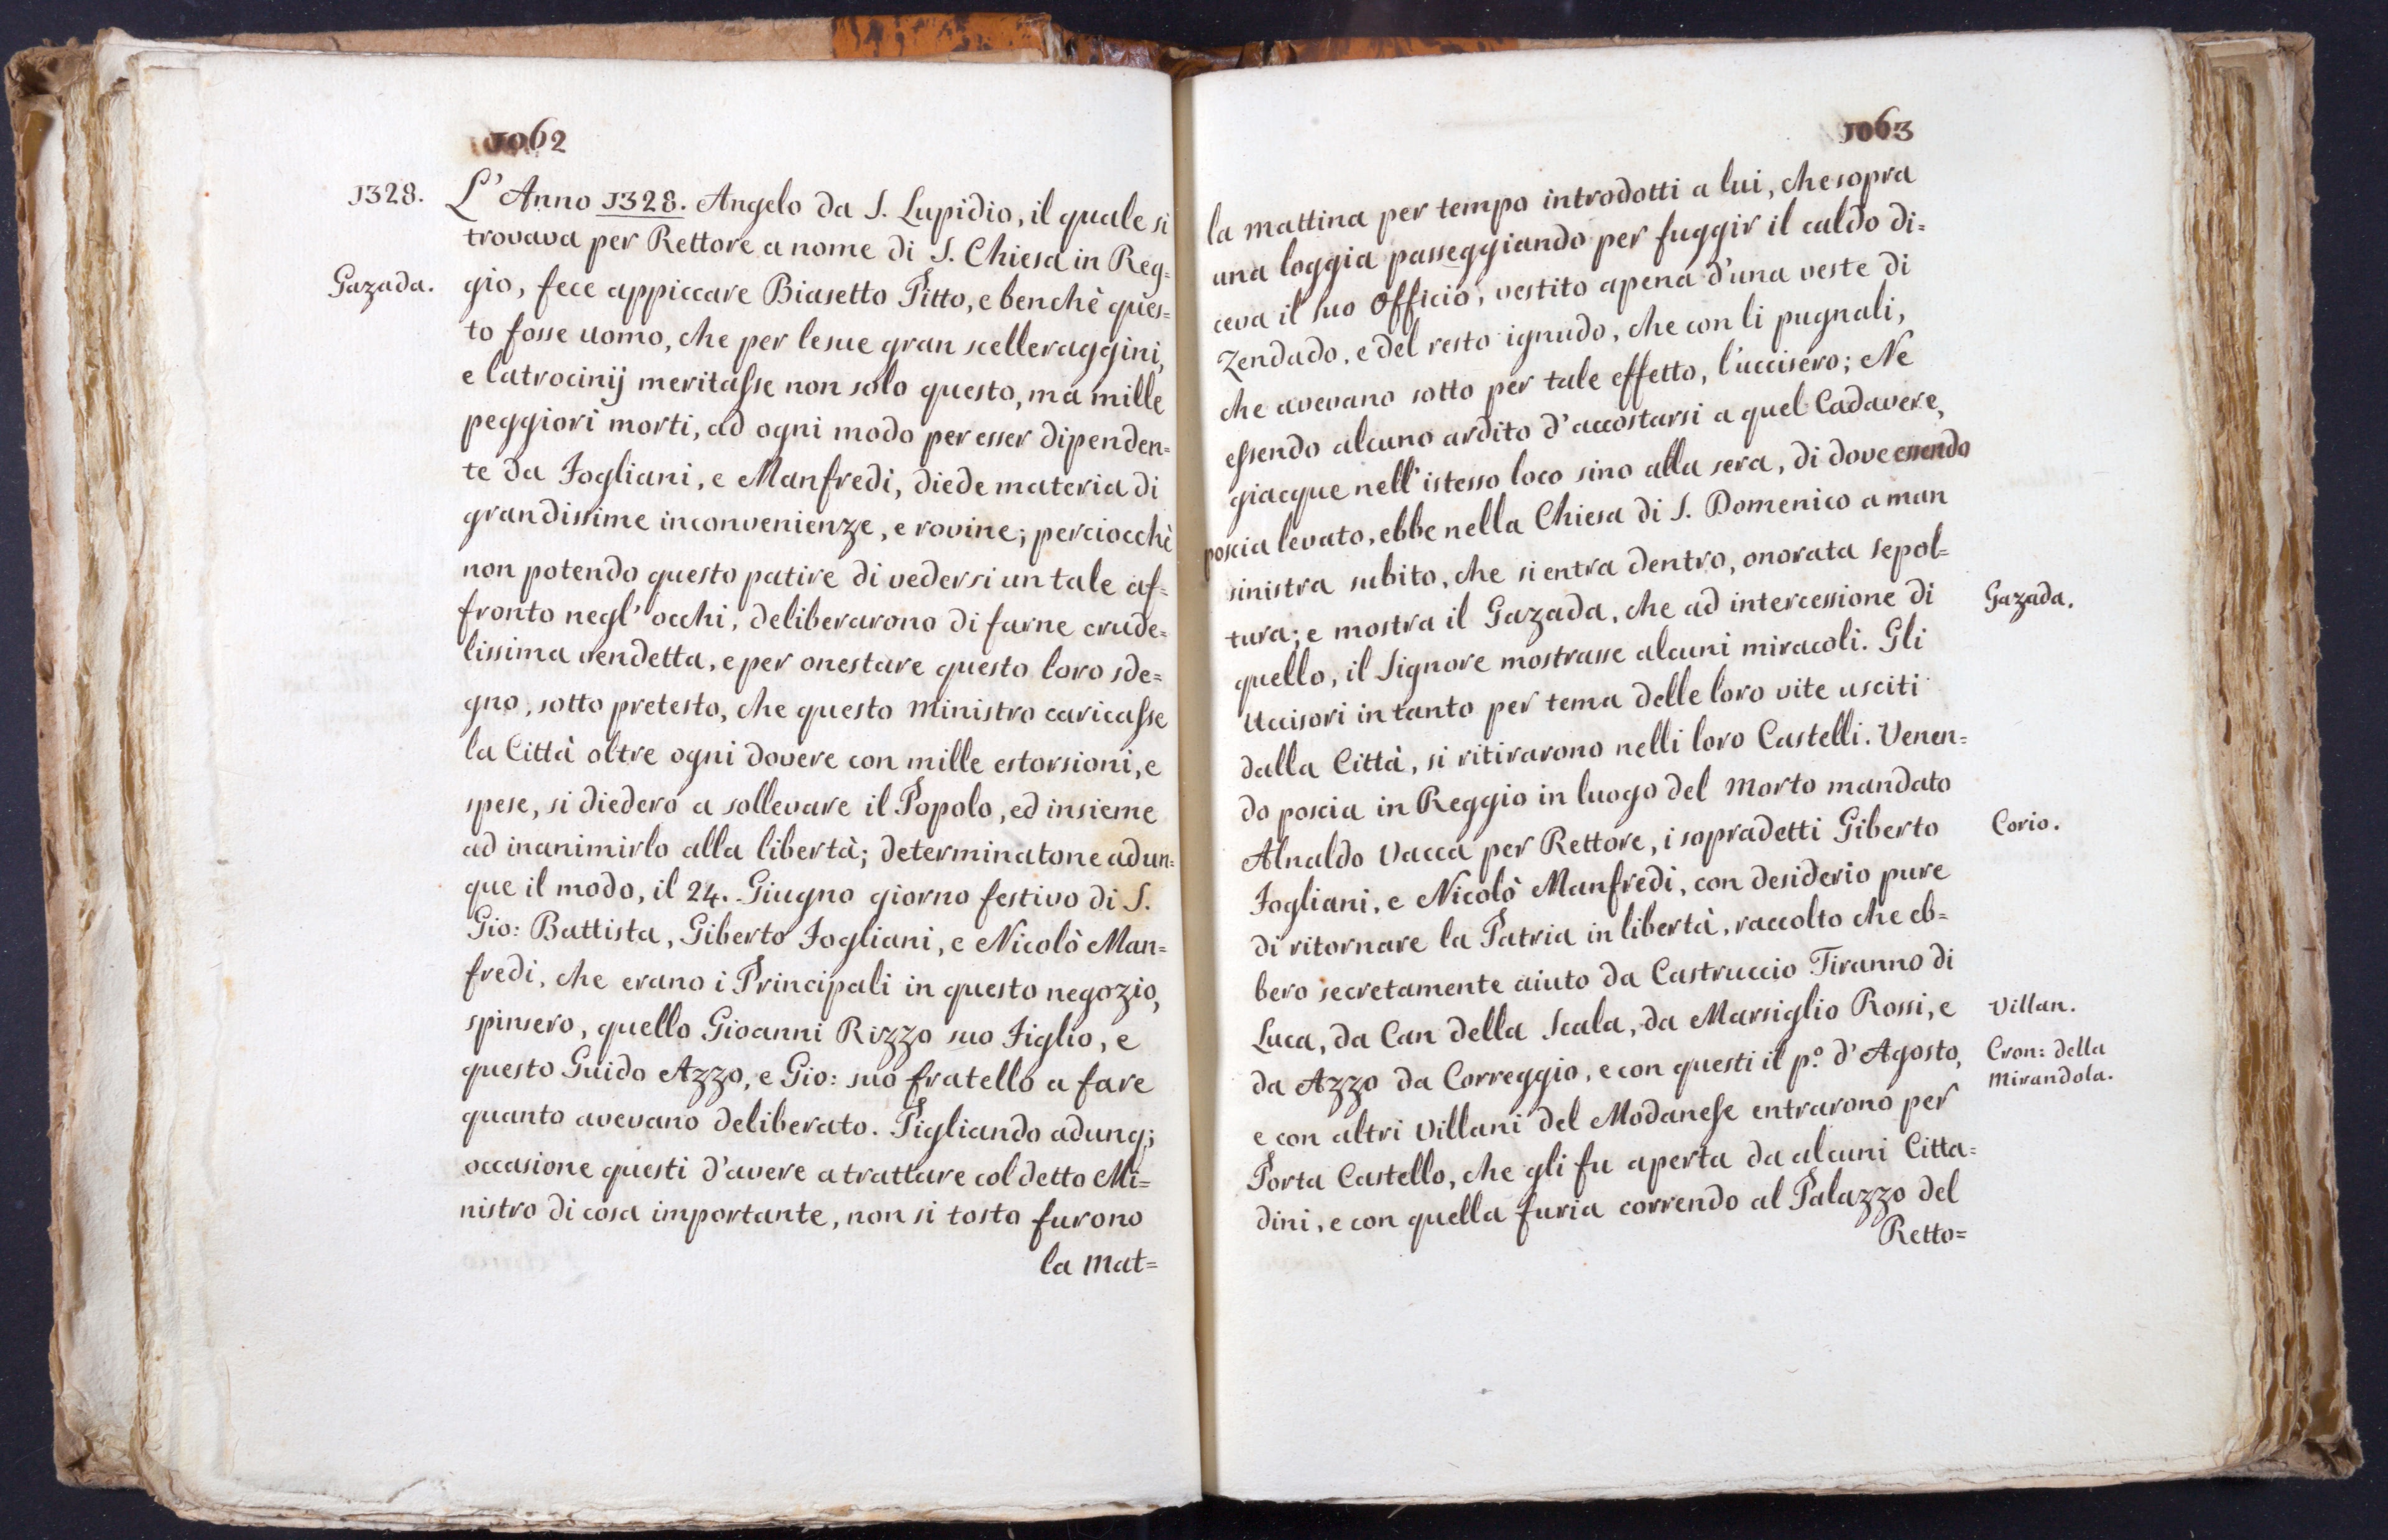 1062
1328.
L'Anno 1328. Angelo da S. Lupidio, il quale si
trovava per Rettore a nome di S. Chiesa in Reg=
Gazada.
gio, fece appiccare Biasetto Pitto, e benchè ques=
to fosse uomo, che per lesue gran scelleraggini,
e latrocinij meritasse non solo questo, ma mille
peggiori morti, ad ogni modo per esser dipenden=
te da Fogliani, e Manfredi, diede materia di
grandissime inconvenienze, e rovine; perciocchè
non potendo questo patire di vedersi un tale af=
fronto negl'occhi, deliberarono di farne crude=
lissima vendetta, e per onestare questo loro sde=
gno, sotto pretesto, che questo Ministro caricasse
la Città oltre ogni dovere con mille estorsioni, e
spese, si diedero a sollevare il Popolo, ed insieme
ad inanimirlo alla libertà; determinatone adun=
que il modo, il 24. Giugno giorno festivo di S.
Gio: Battista, Giberto Fogliani, e Nicolò Man=
fredi, che erano i Principali in questo negozio,
spinsero, quello Gioanni Rizzo suo Figlio, e
questo Guido Azzo, e Gio: suo fratello a fare
quanto avevano deliberato. Pigliando adunq;
occasione questi d'avere a trattare col detto Mi=
nistro di cosa importante, non si tosto furono
la mat=
1063
la mattina per tempo introdotti a lui, che sopra
una loggia passeggiando per fuggir il caldo di=
ceva il suo Officio, vestito apena d'una veste di
Zendado, e del resto ignudo, che con li pugnali,
che avevano sotto per tale effetto, l'uccisero; Ne
essendo alcuno ardito d'accostarsi a quel Cadavere,
giacque nell'istesso loco sino alla sera, di dove essendo
poscia levato, ebbe nella Chiesa di S. Domenico a man
sinistra subito, che si entra dentro, onorata sepol=
tura; e mostra il Gazada, che ad intercessione di
Gazada.
quello, il Signore mostrasse alcuni miracoli. Gli
Uccisori in tanto per tema delle loro vite usciti
dalla Città, si ritirarono nelli loro Castelli. Venen=
do poscia in Reggio in luogo del Morto mandato
Alnaldo Vacca per Rettore, i sopradetti Giberto
Corio.
Fogliani, e Nicolò Manfredi, con desiderio pure
di ritornare la Patria in libertà, raccolto che eb=
bero secretamente aiuto da Castruccio Tiranno di
Luca, da Can della Scala, da Marsiglio Rossi, e
Villan.
da Azzo da Correggio, e con questi il p.º d'Agosto,
Cron: della
Mirandola.
e con altri Villani del Modanese entrarono per
Porta Castello, che gli fu aperta da alcuni Citta=
dini, e con quella furia correndo al Palazzo del
Retto=